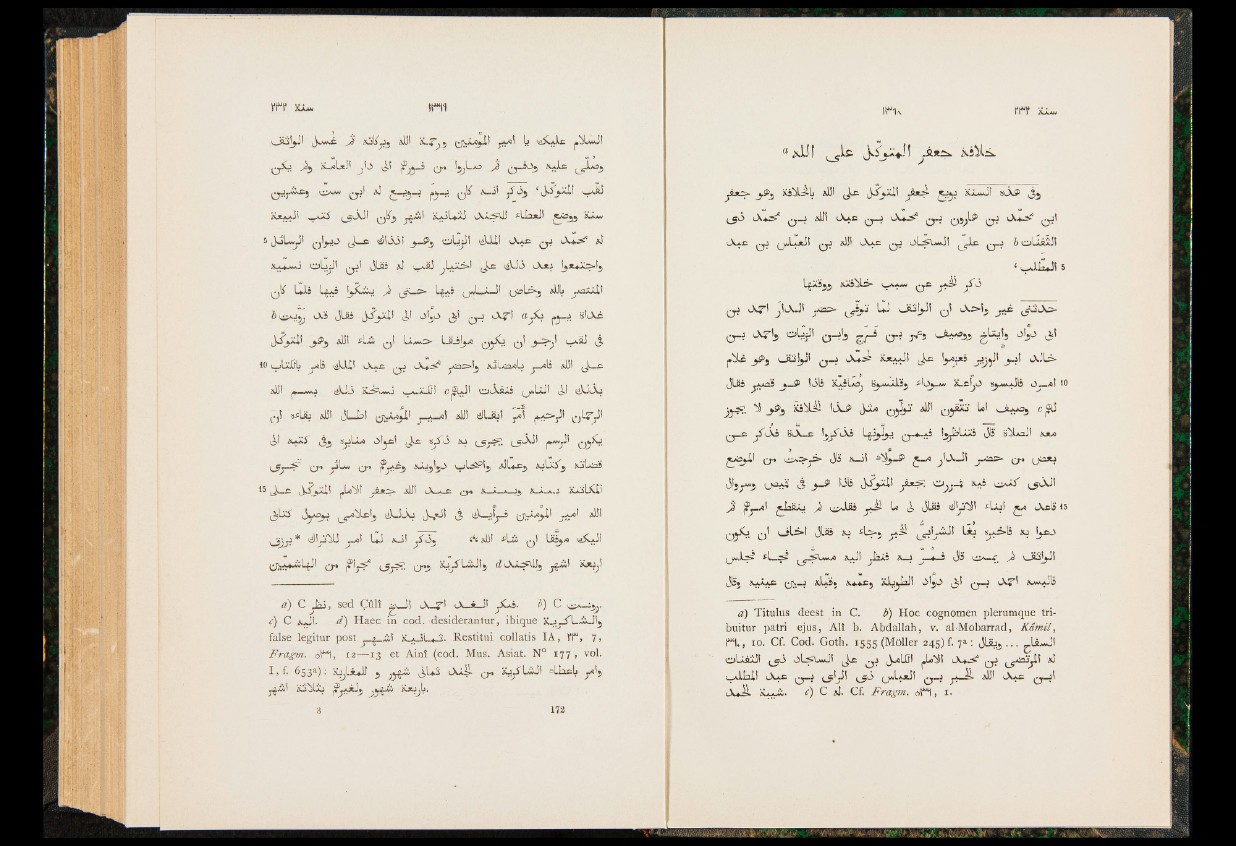 سنة ٢٣٢ ١٣٦٨
خلافة جعفر المتوكّل على الله a
وفى هذه السنة بويع لجعفر المتوكّل على الله بالخلافة وهو جعفر
ابن محمّد بن هارون بن محمّد بن عبد الله بن محمّد ذى
الثَفِنات b بن علىّ السجّاد بن عبد الله بن العبّاس بن عبد
5 المطّلب ،
ذكر الخبر عن سبب خلافته ووقتها
حدّثنى غير واحد ان الواثق لمّا توفّى حضر الدار احمد بن
ابى دواد وايتاخ ووصيف وعمر بن فرج وابن الزيّات واحمد بن
خالد ابو الوزير فعزموا على البيعة لمحمّد بن الواثق وهو غلام
10 امرد فالبسوه درّاعة سوداء وقلنسوة رصافيّة فاذا هو قصير فقال
لهم c وصيف اما تتّقون الله تولّون مثل هذا الخلافة وهو لا يجوز
معه الصلاة قال فتناظروا فيمن يولّونها فذكروا عدّة فذكر عن
بعض من حضر الدار مع هؤلاء انه قال خرجت من الموضع
الذى كنت فيه فمررت بجعفر المتوكّل فاذا هو فى قميص وسروال
15 قاعد مع ابناء الاتراك فقال لى ما الخبر فقلت لم ينقطع امرهم ثم
دعوا به فاخبره بُغا الشرابىّ الخبر وجاء به فقال اخاف ان يكون
الواثق لم يمت قال فمرّ به فنظر اليه مسجّى فجاء فجلس
فالبسه احمد بن ابى دواد الطويلة وعمّمه وقبّله بين عينيه وقال
a) Titulus deest in C. b) Hoc cognomen plerumque tri-
buitur patri ejus, Alî b. Abdallah, v. al-Mobarrad, Kâmil,
١٣٦٠, 10. Cf. Cod. Goth. 1555 (Möller 245) f. 7a: السفاح ... ويقال
له المرتضى بن محمد الامام الكامل بن على السجاد ذى الثفنات
ابن عبد الله الحبر بن العباس ذى الراى بن عبد المطلب
شيبة الحمد. c) C له. Cf. Fragm. ٥٣٦, 1.
سنة ٢٣٢ ١٣٦٩
السلام عليك يا امير المؤمنين ورحمة الله وبركاته ثم غسل الواثق
وصُلّى عليه ودفن ثم صاروا من فورهم الى دار العامّة ولم يكن
لقّب المتوكّل، وذكر انه كان يوم بويع له ابن ستّ وعشرين
سنة ووضع العطاء للجند لثمانية اشهر وكان الذى كتب البيعة
5 له محمّد بن عبد الملك الزيّات وهو اذذاك على ديوان الرسائل
واجتمعوا بعد ذلك على اختيار لقب له فقال ابن الزيّات نسمّيه
المنتصر بالله وخاض الناس فيها حتى لم يشكّوا فيها فلمّا كان
غداة يوم بكر a احمد بن ابى دواد الى المتوكّل فقال قد رويت b
فى لقب ارجو ان يكون موافقا حسنا ان شاء الله وهو المتوكّل
10 على الله فامر بامضائه واحضر محمّد بن عبد الملك فامر بالكتاب
بذلك الى الناس فنفذت اليهم c الكتب نسخة ذلك بسم الله
الرحمن الرحيم امر ابقاك الله امير المؤمنين اطال الله بقاءه ان
يكون الرسم الذى يجرى به ذكره على اعواد منابره وفى كتبه الى
قضاته وكتّابه وعمّاله واصحاب دواوينه وغيرهم من سائر من تجرى
15 المكاتبة بينه وبينه من عبد الله جعفر الامام المتوكّل على
الله امير المؤمنين فرأيك فى العمل بذلك واعلامى بوصول كتابى
اليك موفّقا ان شاء الله، وذكر انه لمّا امر للاتراك *برزق
اربعة اشهر وللجند d والشاكريّة ومن يجرى مجراهم من الهاشميّين
a) C نظر, sed Çûlî الغد احمد الخ فبكر. b) C رويست.
c) C اليه. d) Haec in cod. desiderantur, ibique والشاكرية
false legitur post ثمانية اشهر. Restitui collatis IA, ٢٣, 7,
Fragm. ٥٣٦, 12—13 et Ainî (cod. Mus. Asiat. N° 177, vol.
I, f. 653a): وامر باعطاء الشاكرية من الجند ثمانى شهور و للمغاربة
اربعة شهور ولغيرهم ثلاثة اشهر.
8 172